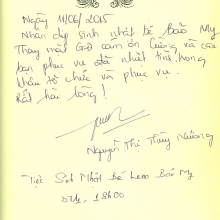 Ngày 11/06/2015
Nhân dịp sinh nhật bé Bảo My
Thay mặt GĐ cảm ơn Cường và các
bạn phục vụ đã nhiệt tình, trong
khâu tổ chức và phục vụ.
Rất hài lòng!
Nguyễn Thị Thùy Nương
Tiệc Sinh Nhật Bé Bảo My
18h00